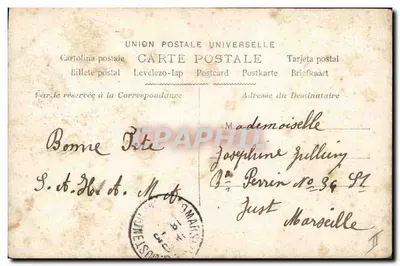 UNION POSTALE UNIVERSELLE
CARTE POSTALE
Cartolina postale
Tarjeta postal
Billete postal Levelezo-lap Postcard Postkarte Briefkaart
Partie réservée à la Correspondance
Adresse du Destinataire
Bonne Fête
S. A. H. A. M. A.
Mademoiselle
Joséphine
Perrin No 36 St
Just
Marseille
II